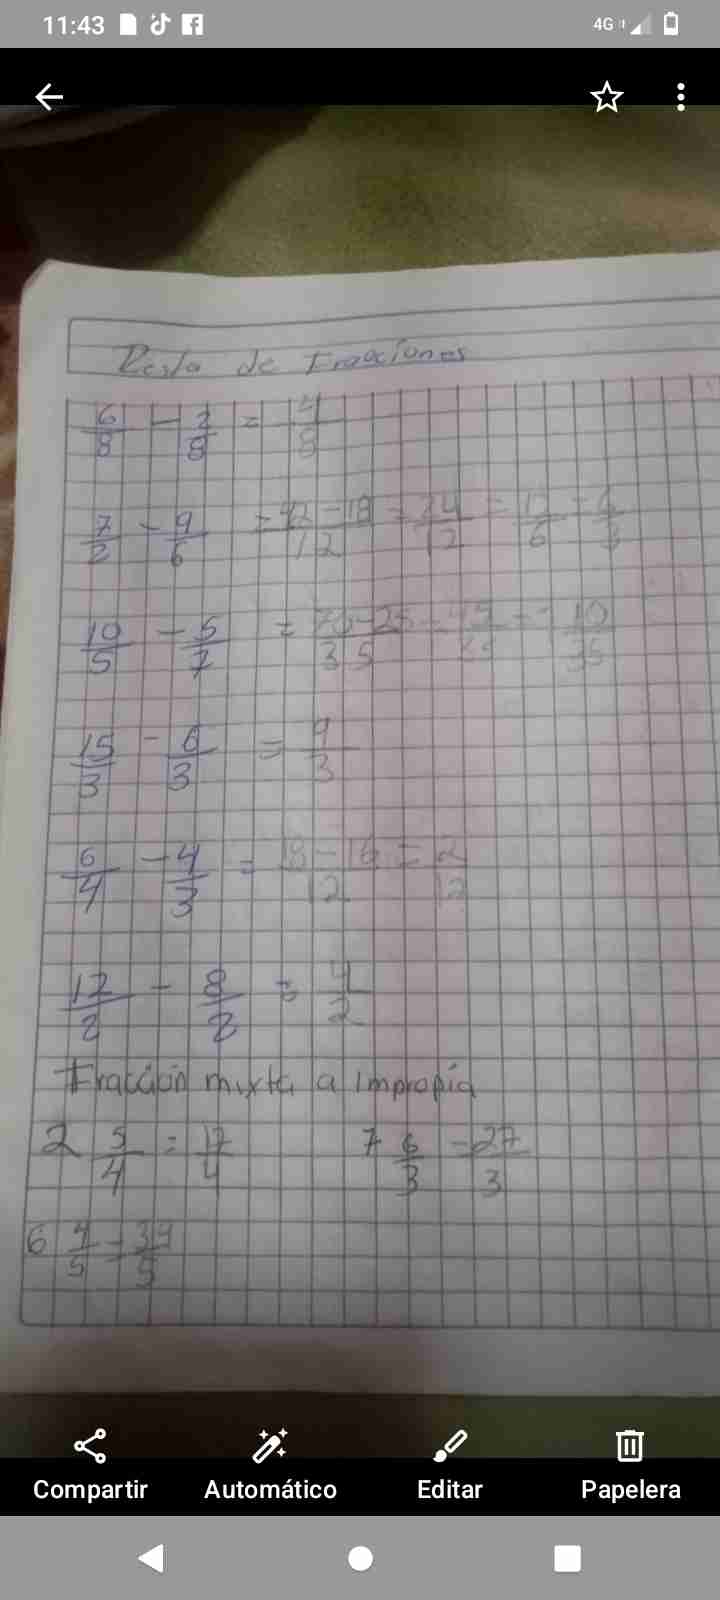 11:43 4G
Resta de Fracciones
6/8 - 2/8 = 4/8
7/2 - 9/6 = 42-18/12 = 24/12 = 12/6 = 6/3
10/5 - 5/7 = 70-25/35 = 45/35 = 1 10/35
15/3 - 6/3 = 9/3
6/4 - 4/3 = 18-16/12 = 2/12
12/2 - 8/2 = 4/2
Fracción mixta a impropia
2 5/4 = 17/4 7 6/3 = 27/3
6 4/5 = 34/5
Compartir Automático Editar Papelera